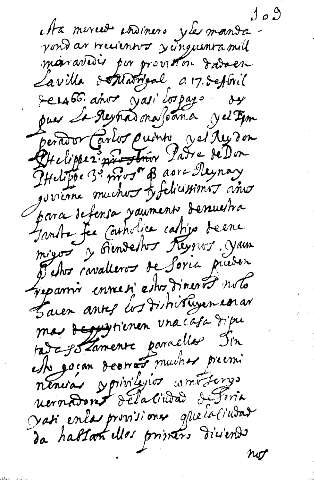 109
esta merced endinero y les manda
ron dar trecientos y cinquenta mil
maravedis por provission dada en
la villa de Madrigal a 17. de Abril
de 1466. años y asi los pago des
pues la Reyna doña Joana y el Em
perador Carlos Quinto y el Rey don
Phelippe 2º Padre de Don
Phelippe 3º nros q aora Reyna y
govierne muchos y felicissimos años
para defensa y aumento de nuestra
santa fee Catholica castigo de ene
migos y bien destos Reynos. y aun
q estos cavalleros de Soria pueden
repartir entresi estos dineros no lo
hacen antes los distribuyen en ar
mas tienen una casa dipu
tada solamente para ellas Sin
esto gozan de otras muchas preemi
nencias y privilegios como ser go
vernadores de la Ciudad de Soria
y asi en las provisiones que la Ciudad
da hablan ellos primero diciendo
nos